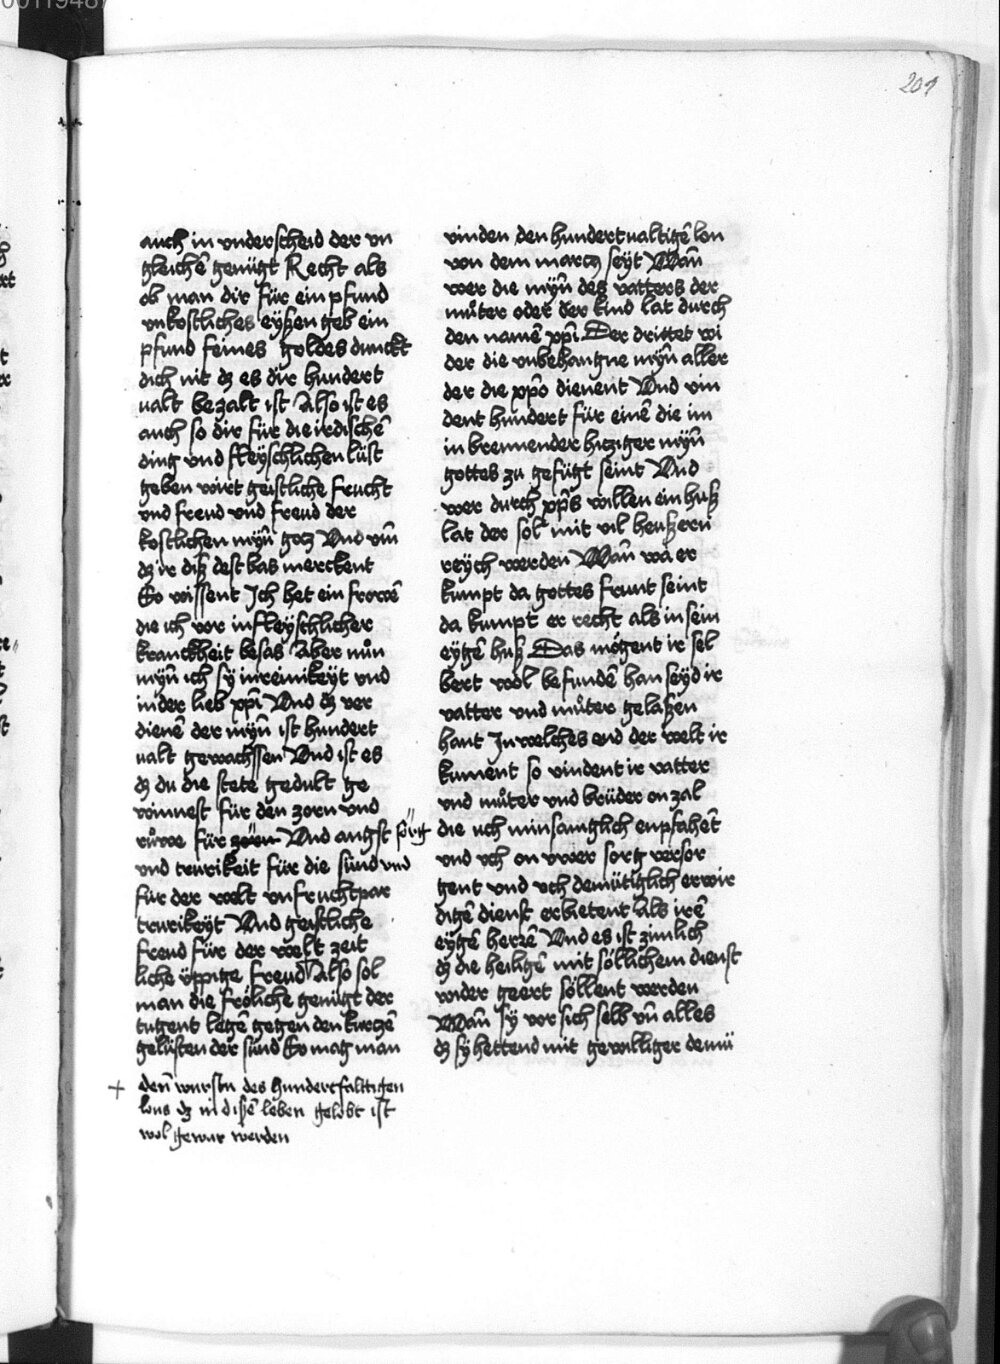 201
auch in vnderscheid der vn
gleichē genügt Recht als
ob man dir für ein pfund
vnkostliches eyßen geb ein
pfund feines goldes dunckt
dich nit dz es dir hundert
ualt bezalt ist Also ist es
auch so dir für die irdischē
ding vnd fleyschlichen lüst
geben wirt geistliche frucht
vnd freud vnd freud der
kostlichen myn̄ gotz Vnd vm̄
dz ir diß dest bas merckent
So wissent Ich het ein frowē
die ich vor in fleyschlicher
kranckheit besas Aber nůn
myn̄ ich sy in reinikeyt vnd
in der lieb xp̄i Vnd dz ver
dienē der myn̄ ist hundert
ualt gewachssen Vnd ist es
dz du die stete gedult ge
winnest für den zorn vnd
růwe für Vnd angst sorg
vnd trurikeit für die sünd vnd
für der welt vnfruchtpar
trurikeyt Vnd geistliche
freud für der welt zeit
liche üppige freud Also sol
man die fröliche genügt der
tugent legē gegen den kurczē
gelüsten der sünd So mag man
+ den̄ des hundertfalttigen
lons dz in disē leben gelobt ist
wol gewar werden
vinden den hundertualtigē lon
von dem marcus seyt Wan̄
wer die myn̄ des vatters der
můter oder der kind lat durch
den namē xp̄i Der drittet wi
der die vnbehangne myn̄ aller
der die xp̄o dienent Vnd vin
dent hundert für einē die im
in brennender hicziger myn̄
gottes zu gefügt seint Vnd
wer durch xp̄s willen ein huß
lat der sol mit vil heußern
reych werden Wan̄ wa er
kumpt da gottes frunt seint
da kumpt er recht als in sein
eygē huß Das mögent ir sel
bert wol befundē han seyd ir
vatter vnd můter gelaßen
hant In welches end der welt ir
kument so vindent ir vatter
vnd můter vnd brüder on zal
die uch minsamglich enpfahēt
vnd vch on vwer sorg versor
gent vnd vch demütiglich erwir
digē dienst erbietent Als irē
eygē herrē Vnd es ist zimlich
dz die heiligē mit söllichem dienst
wider geert söllent werden
Wan̄ sy vor sich selb vn̄ alles
dz sy hettend mit gewilliger demü